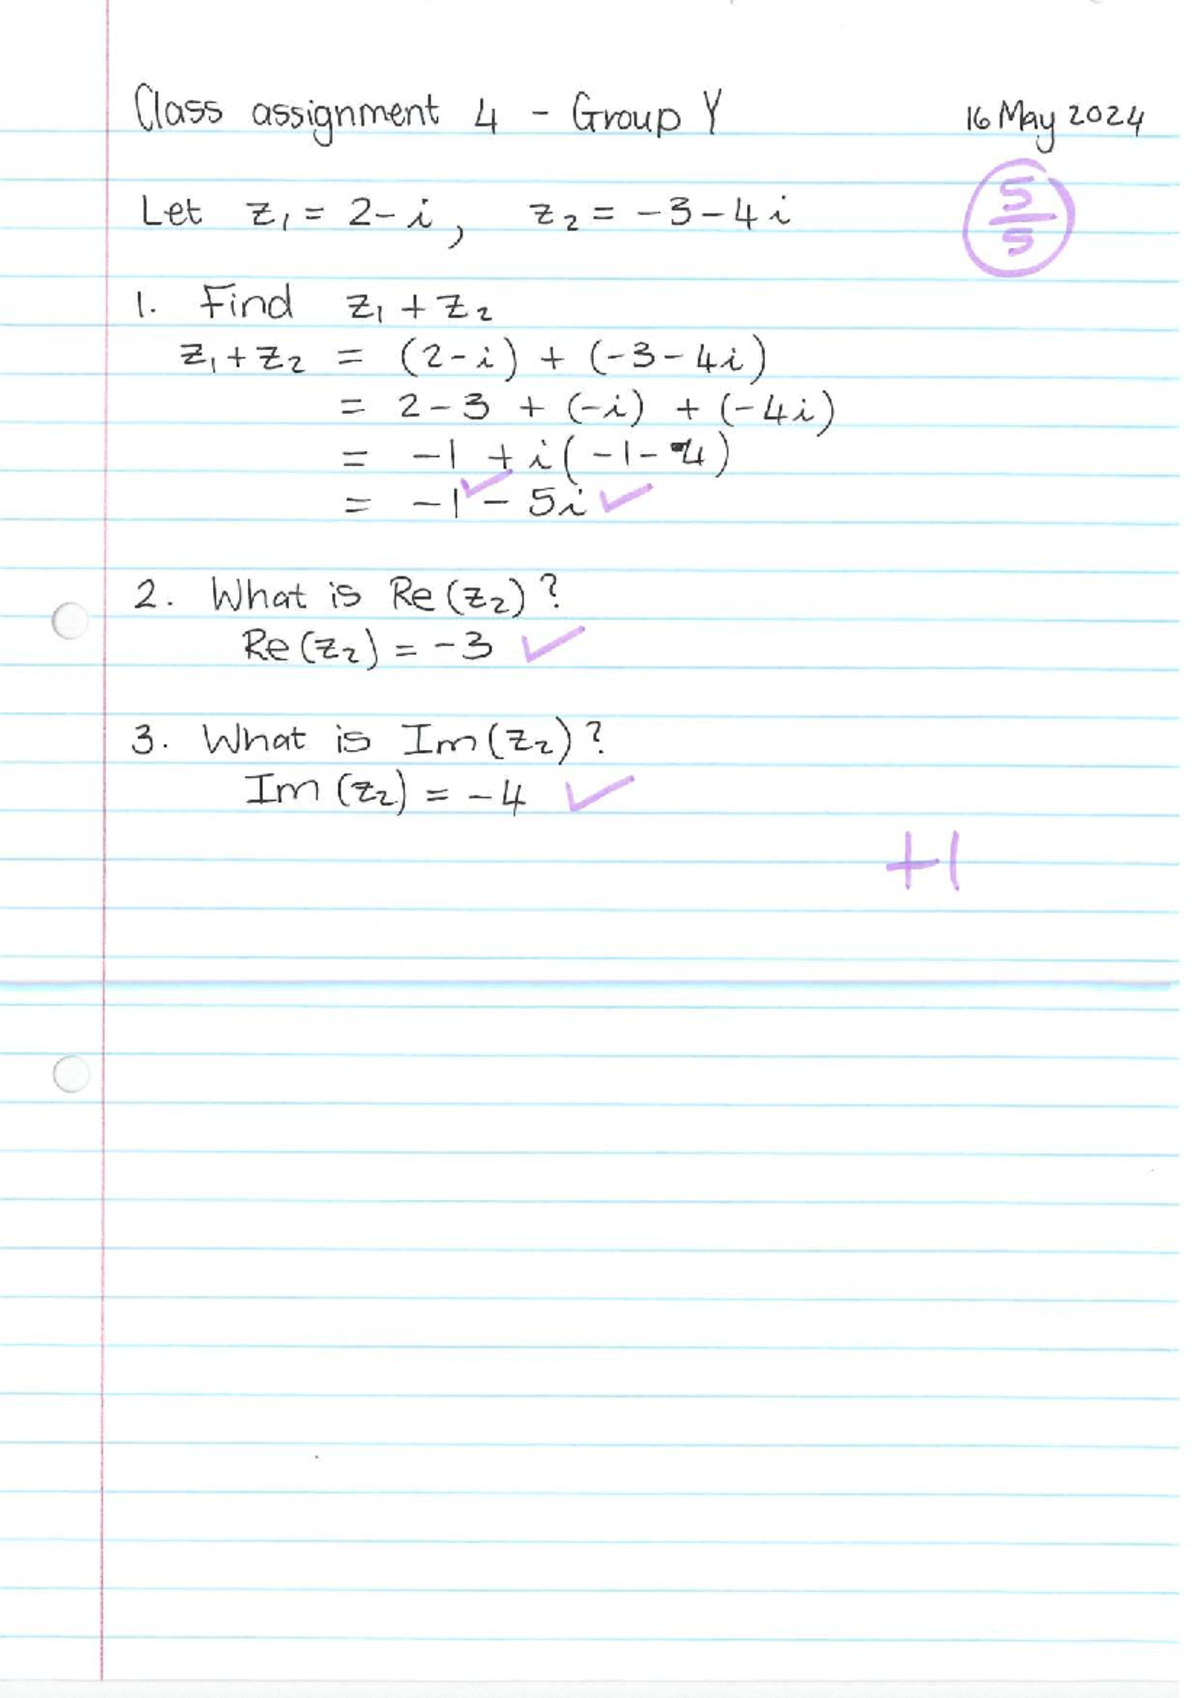 Class assignment 4 - Group Y 16 May 2024
Let z₁ = 2-i, z₂ = -3-4i
5/5
1. Find z₁ + z₂
z₁+z₂ = (2-i) + (-3-4i)
= 2-3 + (-i) + (-4i)
= -1 + i(-1-4)
= -1 - 5i ✓ ✓
2. What is Re(z₂)?
Re(z₂) = -3 ✓
3. What is Im(z₂)?
Im(z₂) = -4 ✓
+1